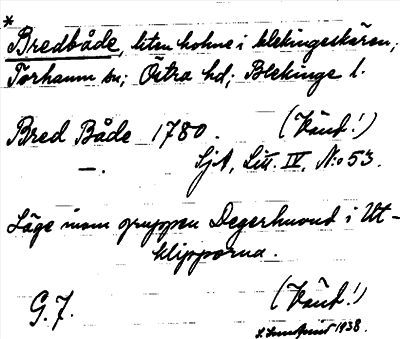 *
Bredbåde, liten holme i blekingeskären;
Torhamn sn; Östra hd; Blekinge l.
Bred Både 1780. (Känd!)
—. Sjk, Litt. IV, No 53.
Läge inom gruppen Degerhuvud i Ut-
klipporna.
G.J. (Känd!)
1938.